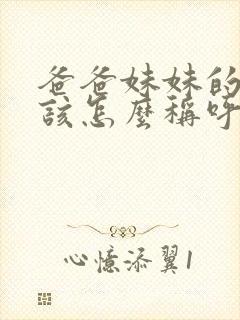 爸爸妹妹的
該怎麼稱呼
心憶添翼1